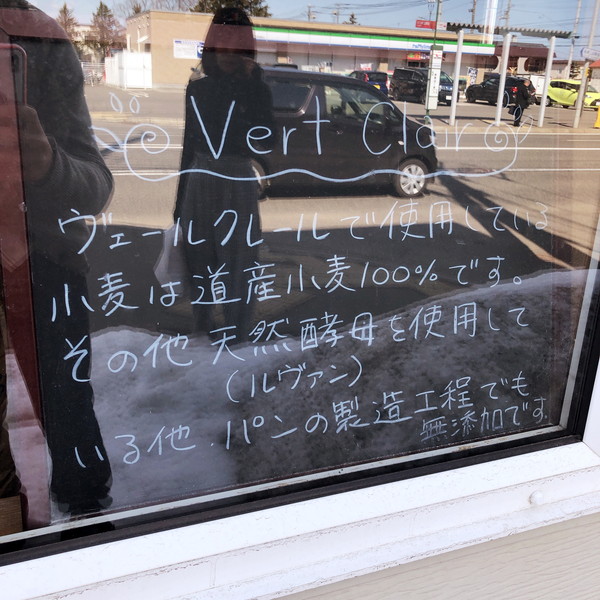 Vert Clair
ヴェールクレールで使用している
小麦は道産小麦100%です。
その他天然酵母を使用して
(ルヴァン)
いる他、パンの製造工程でも
無添加です。